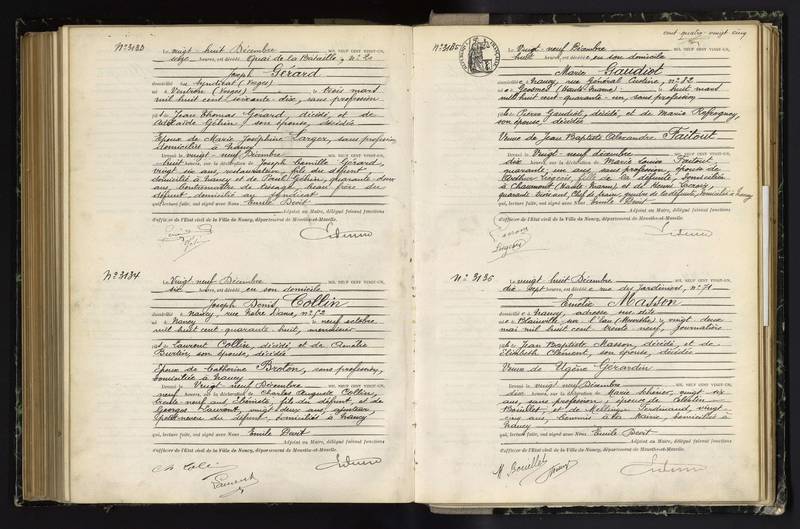 N° 3133
Le vingt-huit Décembre MIL NEUF CENT VINGT-UN,
heures, est décédé Quai de la Bataille, n° 20
Joseph Gérard
domicilié au Syndicat (Vosges)
né à Ventron (Vosges) le trois mars
mil huit cent soixante dix, sans profession
fils de Jean Thomas Gérard, décédé, et de
Adélaïde Géhin, son épouse, décédée
Epoux de Marie Joséphine Larger, sans profession,
domiciliée à Nancy
Dressé le vingt-neuf Décembre MIL NEUF CENT VINGT-UN,
huit heures, sur la déclaration de Joseph Camille Gérard,
vingt six ans, restaurateur, fils du défunt,
domicilié à Nancy et de Paul Géhin, quarante deux
ans, contremaître de tissage, beau frère du
défunt, domicilié au Syndicat
qui, lecture faite, ont signé avec Nous Emile Devit
Adjoint au Maire, délégué faisant fonctions
d'officier de l'État civil de la Ville de Nancy, département de Meurthe-et-Moselle.
N° 3134
Le Vingt neuf Décembre MIL NEUF CENT VINGT-UN,
six heures, est décédé en son domicile
Joseph Denis Collin
domicilié à Nancy, rue Notre Dame, n° 52
né à Nancy le neuf octobre
mil huit cent quarante huit, menuisier
fils de Laurent Collin, décédé, et de Amélie
son épouse, décédée
Epoux de Catherine Broton, sans profession,
domiciliée à Nancy
Dressé le Vingt neuf Décembre MIL NEUF CENT VINGT-UN,
neuf heures, sur la déclaration de Charles Auguste Collin,
trente neuf ans, ébéniste, fils du défunt, et de
Georges Laurent, vingt deux ans, ajusteur,
petit neveu du défunt, domiciliés à Nancy
qui, lecture faite, ont signé avec Nous Emile Devit
Adjoint au Maire, délégué faisant fonctions
d'officier de l'État civil de la Ville de Nancy, département de Meurthe-et-Moselle.
Ch Collin
Laurent
cent quatre-vingt cinq
N° 3135
Le Vingt-neuf Décembre MIL NEUF CENT VINGT-UN,
huit heures, est décédée en son domicile
Marie Gaudiot
domiciliée à Nancy, rue Général Custine, n° 82
née à Yesmes (Haute Marne) le huit mars
mil huit cent quarante un, sans profession
fille de Pierre Gaudiot, décédé, et de Marie
son épouse, décédée
Veuve de Jean Baptiste Alexandre Faitout
Dressé le Vingt-neuf décembre MIL NEUF CENT VINGT-UN,
dix heures, sur la déclaration de Marie Louise Faitout,
quarante un ans, sans profession, épouse de
fille de la défunte, domiciliée
à Chaumont (Haute Marne) et de Henri
quarante trois ans, gendre de la défunte, domicilié à Nancy
qui, lecture faite, ont signé avec Nous Emile Devit
Adjoint au Maire, délégué faisant fonctions
d'officier de l'État civil de la Ville de Nancy, département de Meurthe-et-Moselle.
N° 3136
Le vingt huit Décembre MIL NEUF CENT VINGT-UN,
dix sept heures, est décédée rue des Jardiniers, n° 71
Emélie Masson
domiciliée à Nancy, adresse sus dite
née à Blainville sur l'Eau (Meurthe) le vingt deux
mai mil huit cent trente neuf, journalière
fille de Jean Baptiste Masson, décédé, et de
Elisabeth Clément, son épouse, décédée
Veuve de Ugène Gérardin
Dressé le Vingt neuf Décembre MIL NEUF CENT VINGT-UN,
dix heures, sur la déclaration de Marie vingt six
ans, sans profession, épouse de Célestin
Bouillet, et de Ferdinand, vingt
ans, commis à la Mairie, domiciliés à
Nancy
qui, lecture faite, ont signé avec Nous Emile Devit
Adjoint au Maire, délégué faisant fonctions
d'officier de l'État civil de la Ville de Nancy, département de Meurthe-et-Moselle.
M Bouillet